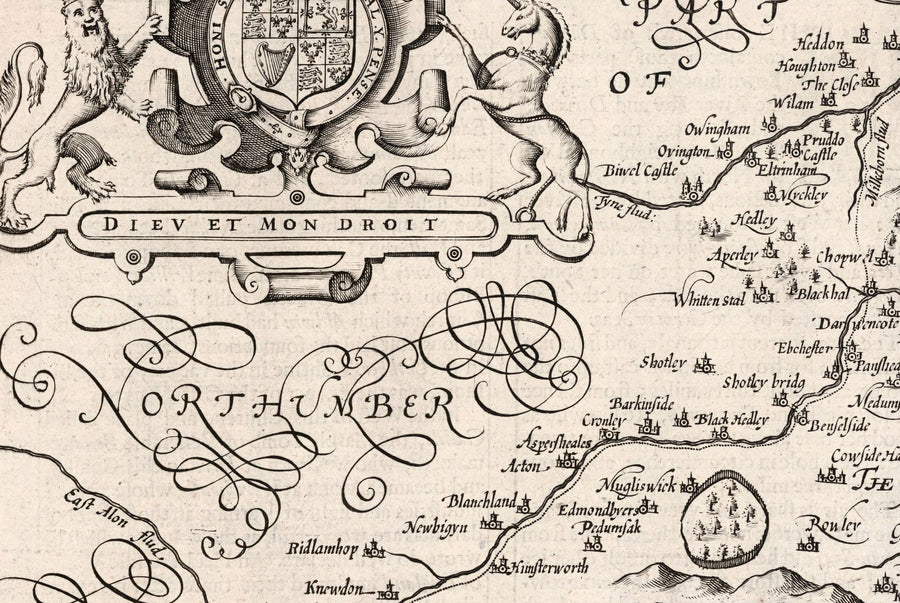 HONI S
AL Y PENSE
DIEV ET MON DROIT
PART
OF
Heddon
Houghton
The Close
Wilam
Owingham
Ovington
Pruddo
Castle
Eltrinham
Biwel Castle
Myckley
Tyne flud:
Millehorn flud
Hedley
Aperley
Chopwel
Whitten stal
Blackhal
Darwencote
Ebchester
Shotley
Shotley bridg
Panshe
Medum
Barkinside
Cronley
Black Hedley
Benselside
Aspersheales
Acton
NORTHUMBER
Cowside Ha
THE
Mugliswick
Blanchland
Edmondbyers
Newbigyn
Pedumsak
Rowley
East Alon flud.
Ridlamhop
Hunsterworth
Knewdon